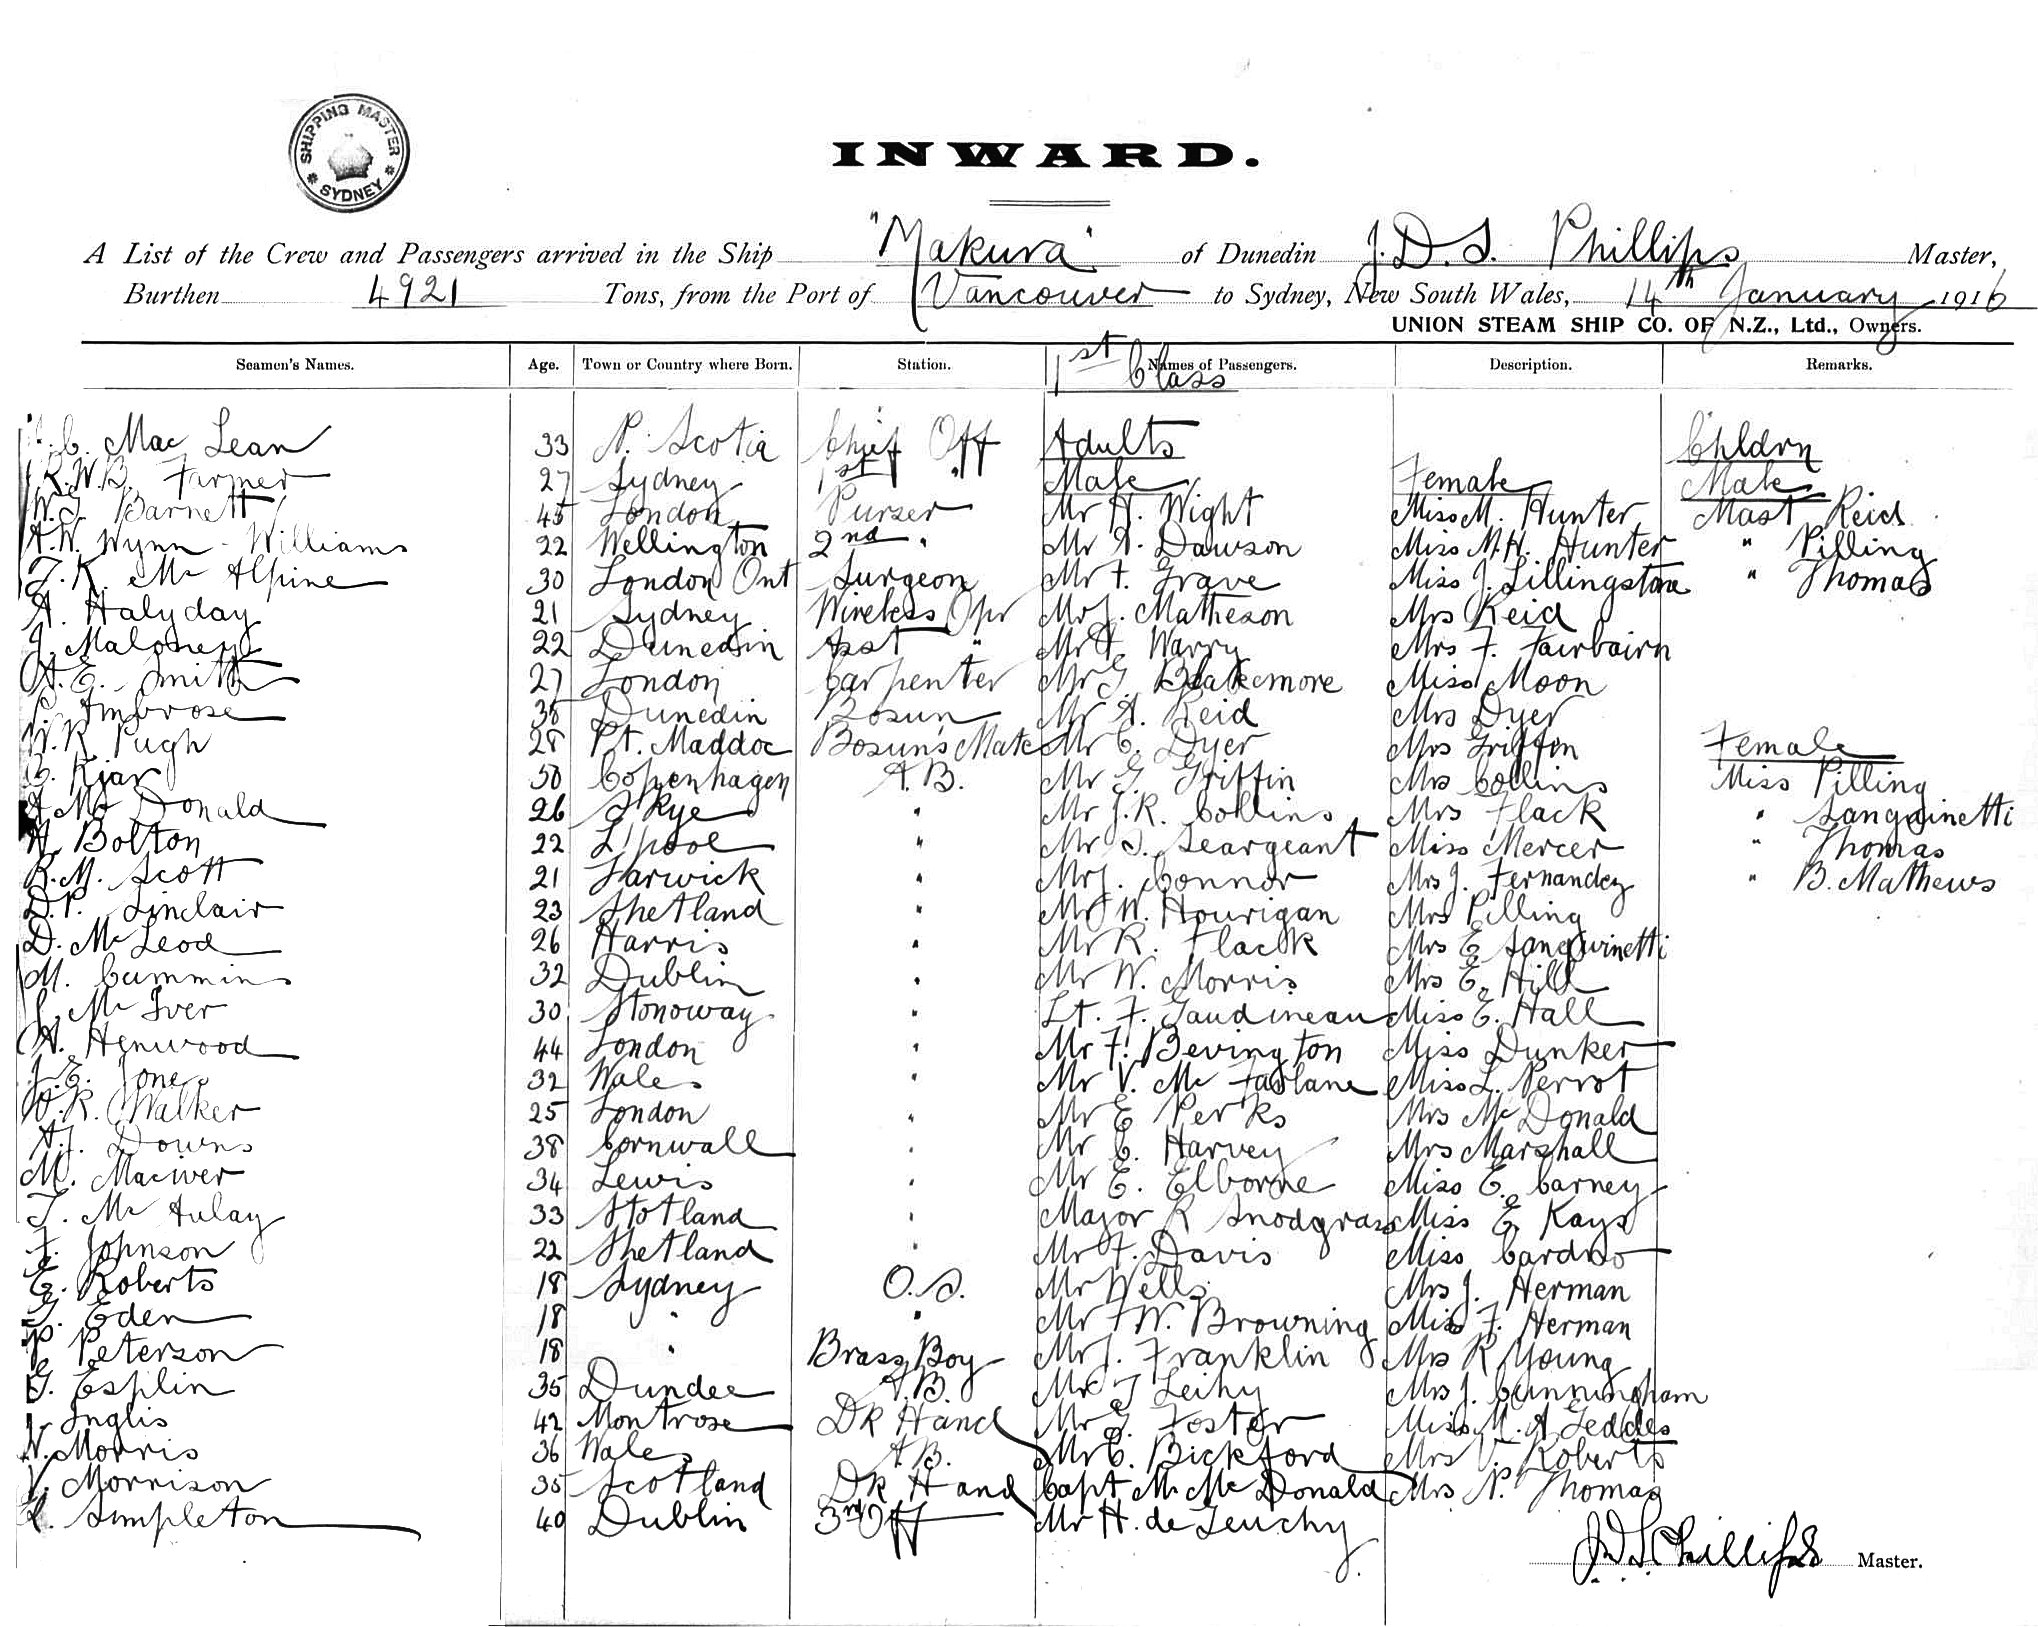 SHIPPING MASTER
SYDNEY
INWARD.
A List of the Crew and Passengers arrived in the Ship "Makura" of Dunedin J.D.S. Phillips Master,
Burthen 4921 Tons, from the Port of Vancouver to Sydney, New South Wales, 14th January 1916
UNION STEAM SHIP CO. OF N.Z., Ltd., Owners.
Seamen's Names. Age. Town or Country where Born. Station. Names of Passengers. Description. Remarks.
1st Class
C. Mac Lean 33 N. Scotia Chief Off Adults Chldrn
R.W.B. Farmer 27 Sydney 1st " Male Female Male
Barnett 45 London Purser Mr H. Wight Miss M. Hunter Mast Reid
A.W. Wynn-Williams 22 Wellington 2nd " Mr A. Dawson Miss M.H. Hunter " Pilling
J.K. Mc Alpine 30 London Ont Surgeon Mr F. Grave Miss J. Lillingstone " Thomas
A. Halyday 21 Sydney Wireless Opr Mr J. Matheson Mrs Reid
J. Maloney 22 Dunedin Asst " Mr F. Warry Mrs F. Fairbairn
A.E. Smith 27 London Carpenter Mr G. Blakemore Miss Moon
Ambrose 38 Dunedin Bosun Mr A. Reid Mrs Dyer
W.R. Pugh 28 Pt. Maddoc Bosun's Mate Mr C. Dyer Mrs Griffin Female
C. Kjar 50 Copenhagen A.B. Mr G. Griffin Mrs Collins Miss Pilling
J Mc Donald 26 Skye " Mr J.R. Collins Mrs Flack " Sanguinetti
A Bolton 22 L'pool " Mr S. Seargeant Miss Mercer " Thomas
R.M. Scott 21 Harwick " Mr J. Connor Mrs J. Fernandez " B. Mathews
D.P. Sinclair 23 Shetland " Mr W. Hourigan Mrs Pilling
D. Mc Leod 26 Harris " Mr R. Flack Mrs E Sanguinetti
M. Cummins 32 Dublin " Mr W. Morris Mrs E. Hill
J. Mc Iver 30 Stonoway " Lt. F. Gaudineau Miss E. Hall
A. Henwood 44 London " Mr F. Bevington Miss Dunker
J.E. Jones 32 Wales " Mr V. Mc Farlane Miss L. Perrot
W.R. Walker 25 London " Mr E Perks Mrs Mc Donald
A.J. Downs 38 Cornwall " Mr C. Harvey Mrs Marshall
M. Maciver 34 Lewis " Mr E. Elborne Miss E. Carney
T. Mc Aulay 33 Stotland " Major R Snodgrass Miss E. Kays
F. Johnson 22 Shetland " Mr F. Davis Miss Cardno
E. Roberts 18 Sydney O.S. Mr Wells Mrs J. Herman
G. Eden 18 " " Mr F.W. Browning Miss F. Herman
P. Peterson 18 " Brass Boy Mr J. Franklin Mrs R Young
G. Esplin 35 Dundee A.B. Mr J Leihy Mrs J. Cunningham
Inglis 42 Montrose Dk Hand Mr G. Foster Miss M. A Geddes
N. Morris 36 Wales A.B. Mr C. Bickford Mrs V. Roberts
V. Morrison 35 Scotland Dk Hand Capt M. Mc Donald Mrs N. Thomas
R. Simpleton 40 Dublin 3rd Off Mr H. de Leuchy
J.D.S. Phillips Master.